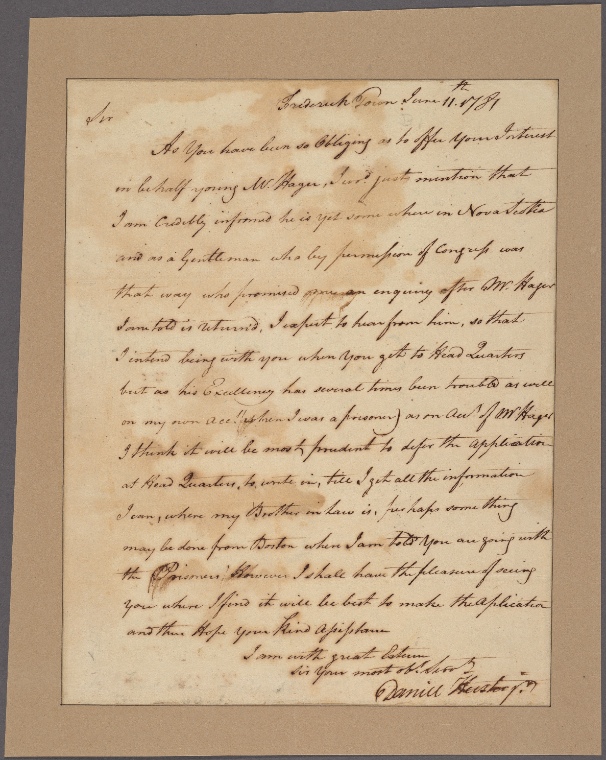 Frederick Town June 11.th 1781
Sir
As You have been so Obliging as to offer Your Interest
in behalf young Mr. Hager, I wod. just mention that
I am Credibly informed he is yet some where in Nova Scotia
and as a Gentleman who by permission of Congress was
that way who promised an enquiry after Mr. Hager
I am told is returned, I expect to hear from him, so that
I intend being with you when You get to Head Quarters
but as his Excellency has several times been troubled as well
on my own acct. (when I was a prisoner) as on Acct. of Mr Hager
I think it will be most prudent to defer the Application
at Head Quarters, to write in, till I get all the information
I can, where my Brother in Law is, perhaps some thing
may be done from Boston when I am told You are going with
the Prisoners. However I shall have the pleasure of seeing
you where I find it will be best to make the Application
and then Hope your Kind Assistance
I am with great Esteem
Sir Your most obt. Servt.
Daniel Heister Jr.